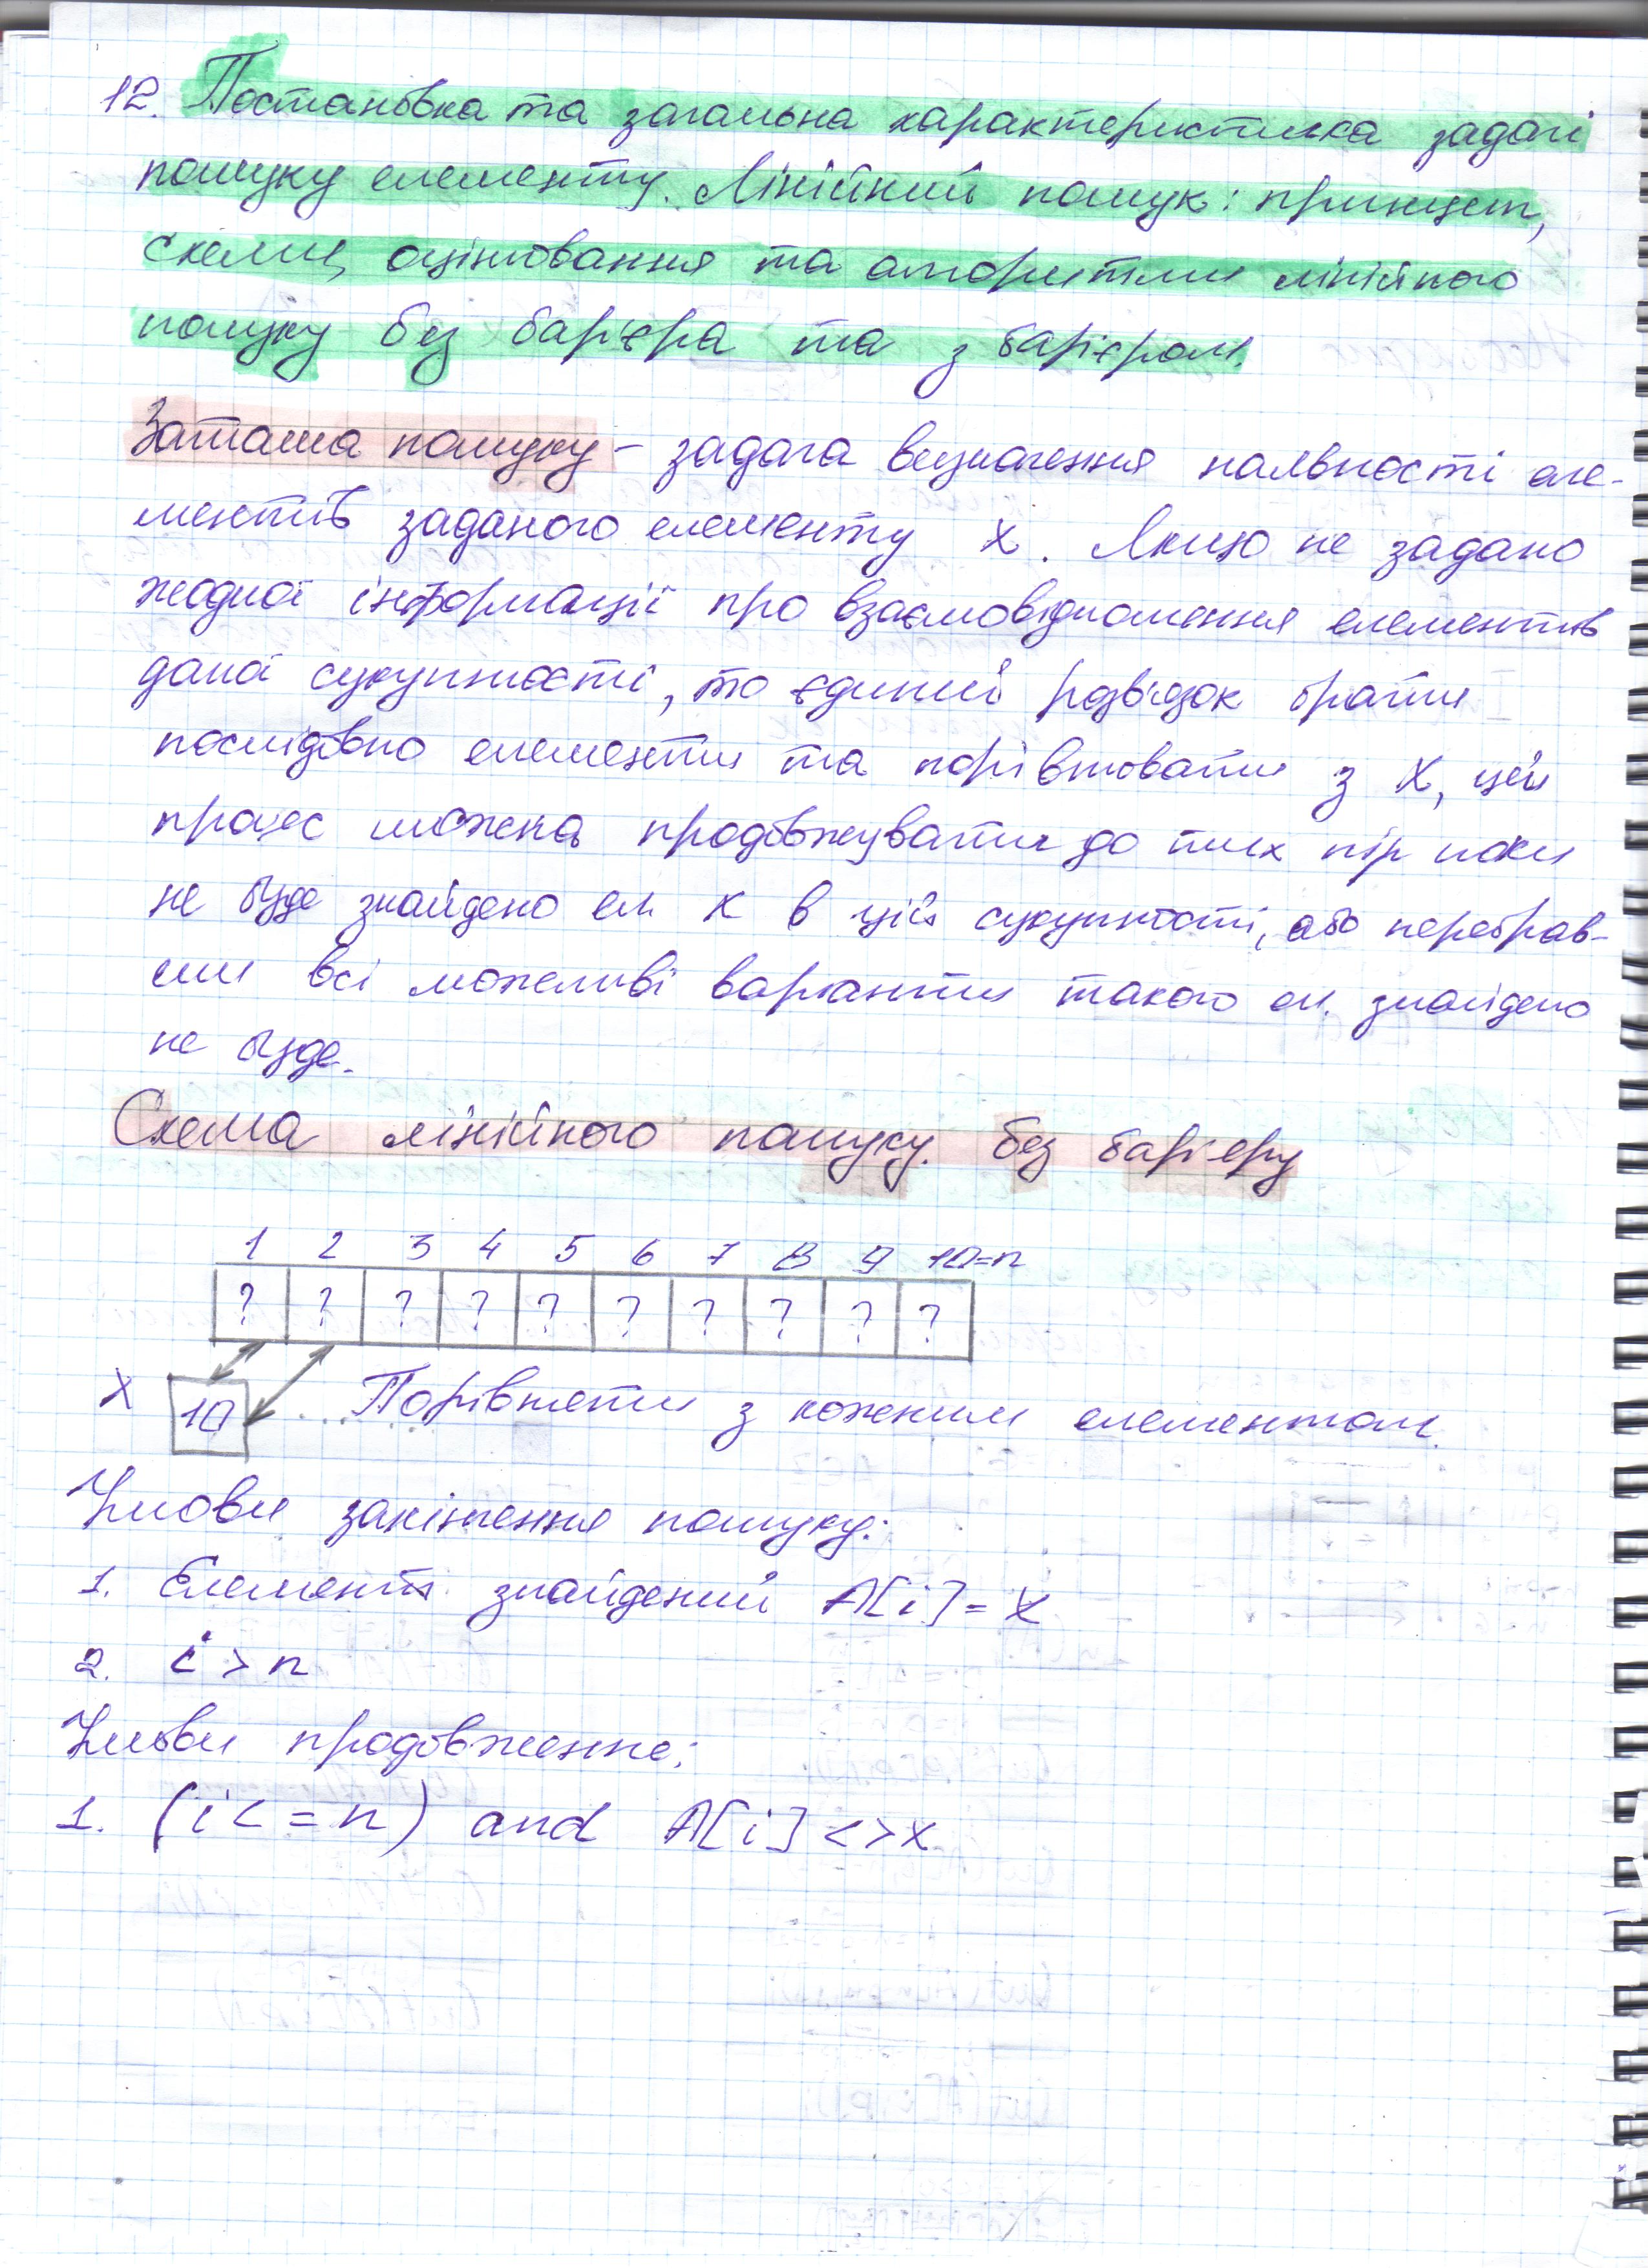 12. Постановка та загальна характеристика задачі
пошуку елементу. Лінійний пошук: принцип,
схеми, оцінювання та алгоритми лінійного
пошуку без барієра та з барієром.
пошуку – задача визначення наявності еле-
ментів заданого елементу х. Якщо не задано
жодної інформації про взаємовідношення елементів
даної сукупності, то єдиний розвязок брати
послідовно елементи та порівнювати з х, цей
процес можна продовжувати до тих пір поки
не буде знайдено ел х в цій сукупності, або перебрав-
ши всі можливі варіанти такого ел. знайдено
не буде.
Схема лінійного пошуку. без барієру
1 2 3 4 5 6 7 8 9 10=n
? ? ? ? ? ? ? ? ? ?
X 10 ... Порівняти з кожним елементом.
Умови закінчення пошуку:
1. Елемент знайдений A[i]=x
2. i>n
Умови продовження:
1. (i<=n) and A[i]<>x